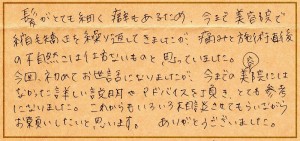 髪がとても細く、癖もあるため、今まで美容院で
縮毛矯正を繰り返してきましたが、痛みと施術直後
の不自然さは仕方ないものと思っていました。
今回、初めてお世話になりましたが、今までの美容院には
なかった詳しい説明やアドバイスを頂き、とても参考
になりました。これからもいろいろ相談させてもらいながら
お願いしたいと思います。 ありがとうございました。